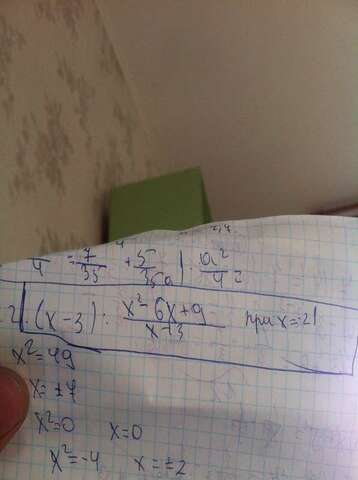 4 = 7/35 + 5/35a | a²/4²
2 (x-3) : x²-6x+9/x-3 при x=-21
x²=49
x=±7
x²=0 x=0
x²=-4 x=±2